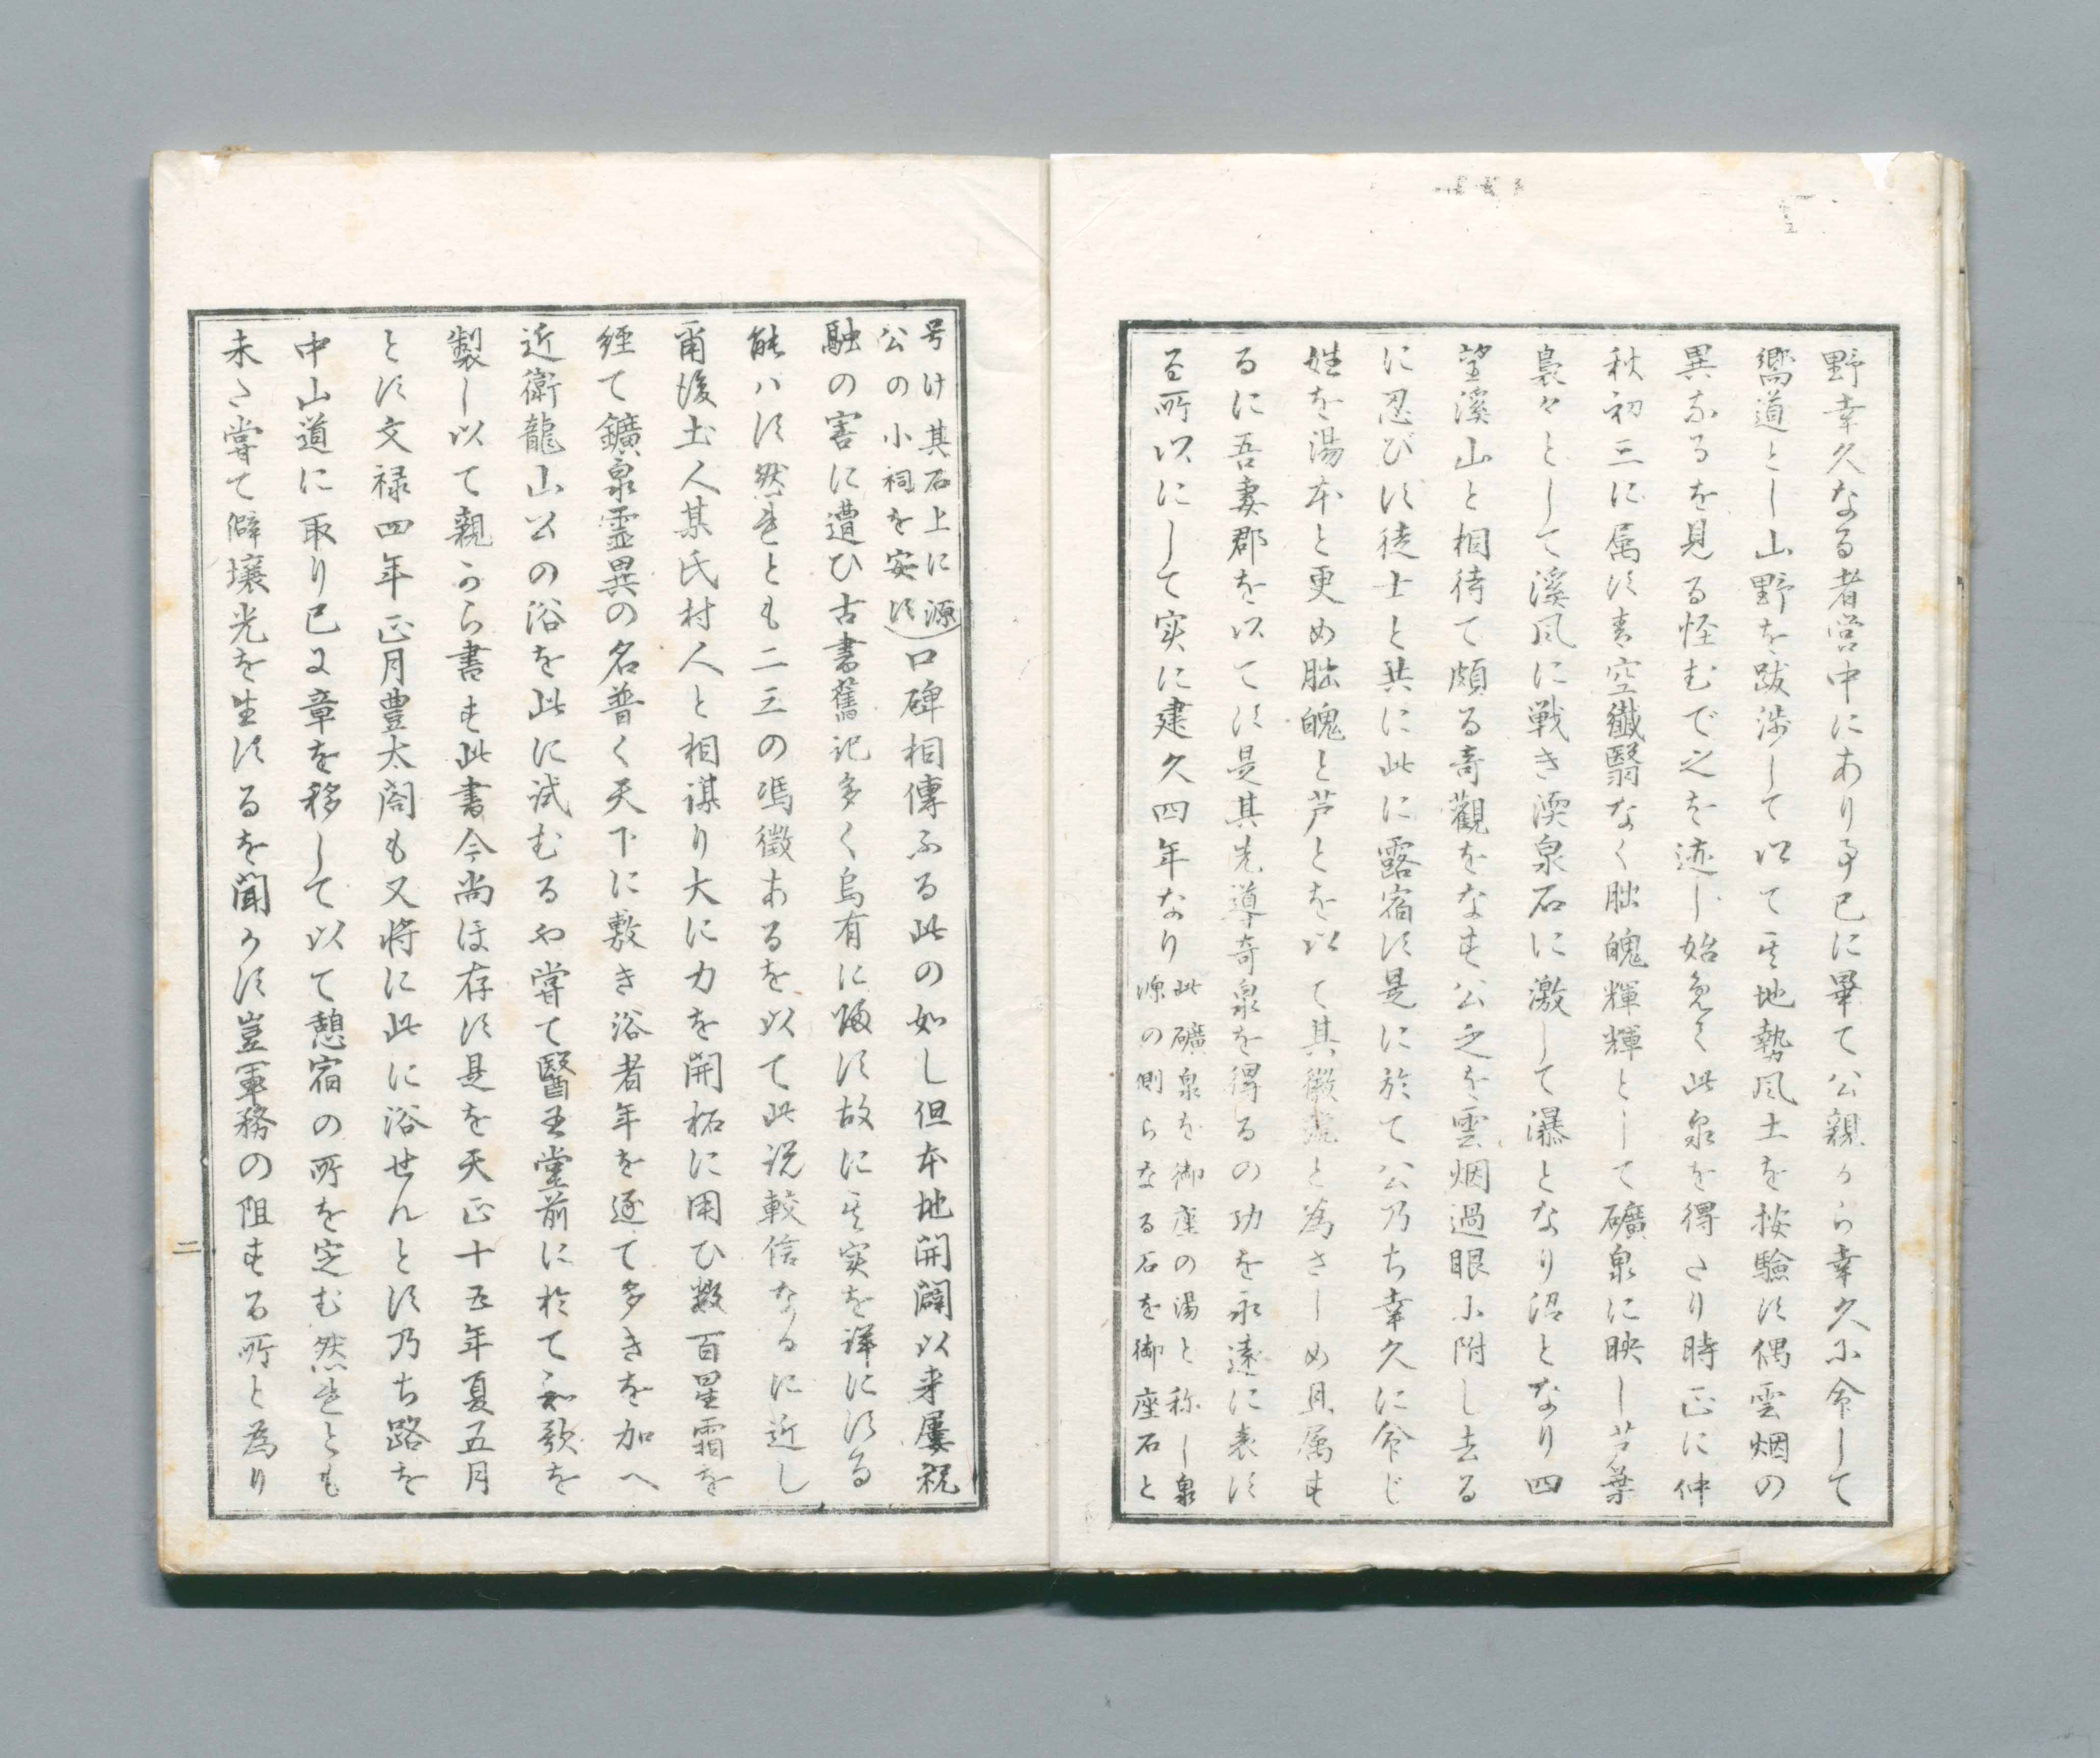 野幸久なる者営中にあり事已に畢て公親から幸久に命して
嚮道とし山野を跋渉して以て其地勢風土を按驗す偶雲烟の
異なるを見る怪むで之を迹し始免て此泉を得たり時正に仲
秋初三に属す青空纎翳なく朏魄輝輝として礦泉に映し芦葉
裊々として溪風に戦き湲泉石に激して瀑となり沼となり四
望溪山と相待て頗る奇觀をなす公之を雲烟過眼に附し去る
に忍びす徒士と共に此に露宿す是に於て公乃ち幸久に命じ
姓を湯本と更め朏魄と芦とを以て其徽号と為さしめ且属す
るに吾妻郡を以てす是其先導奇泉を得るの功を永遠に表す
る所以にして実に建久四年なり
此礦泉を御座の湯と称し泉
源の側らなる石を御座石と
号け其石上に源
公の小祠を安す
口碑相傳ふる此の如し但本地開闢以来屢祝
融の害に遭ひ古書舊記多く烏有に帰す故に其実を詳にする
能ハす然れとも二三の馮徴あるを以て此説較信なるに近し
爾後土人某氏村人と相謀り大に力を開拓に用ひ数百星霜を
経て鑛泉霊異の名普く天下に敷き浴者年を逐て多きを加へ
近衛龍山公の浴を此に試むるや嘗て醫王堂前に於て和歌を
製し以て親から書す此書今尚ほ存す是を天正十五年夏五月
とす文禄四年正月豊太閤も又将に此に浴せんとす乃ち路を
中山道に取り已に章を移して以て憩宿の所を定む然れとも
未た嘗て僻壤光を生するを聞かす豈軍務の阻する所と為り
二